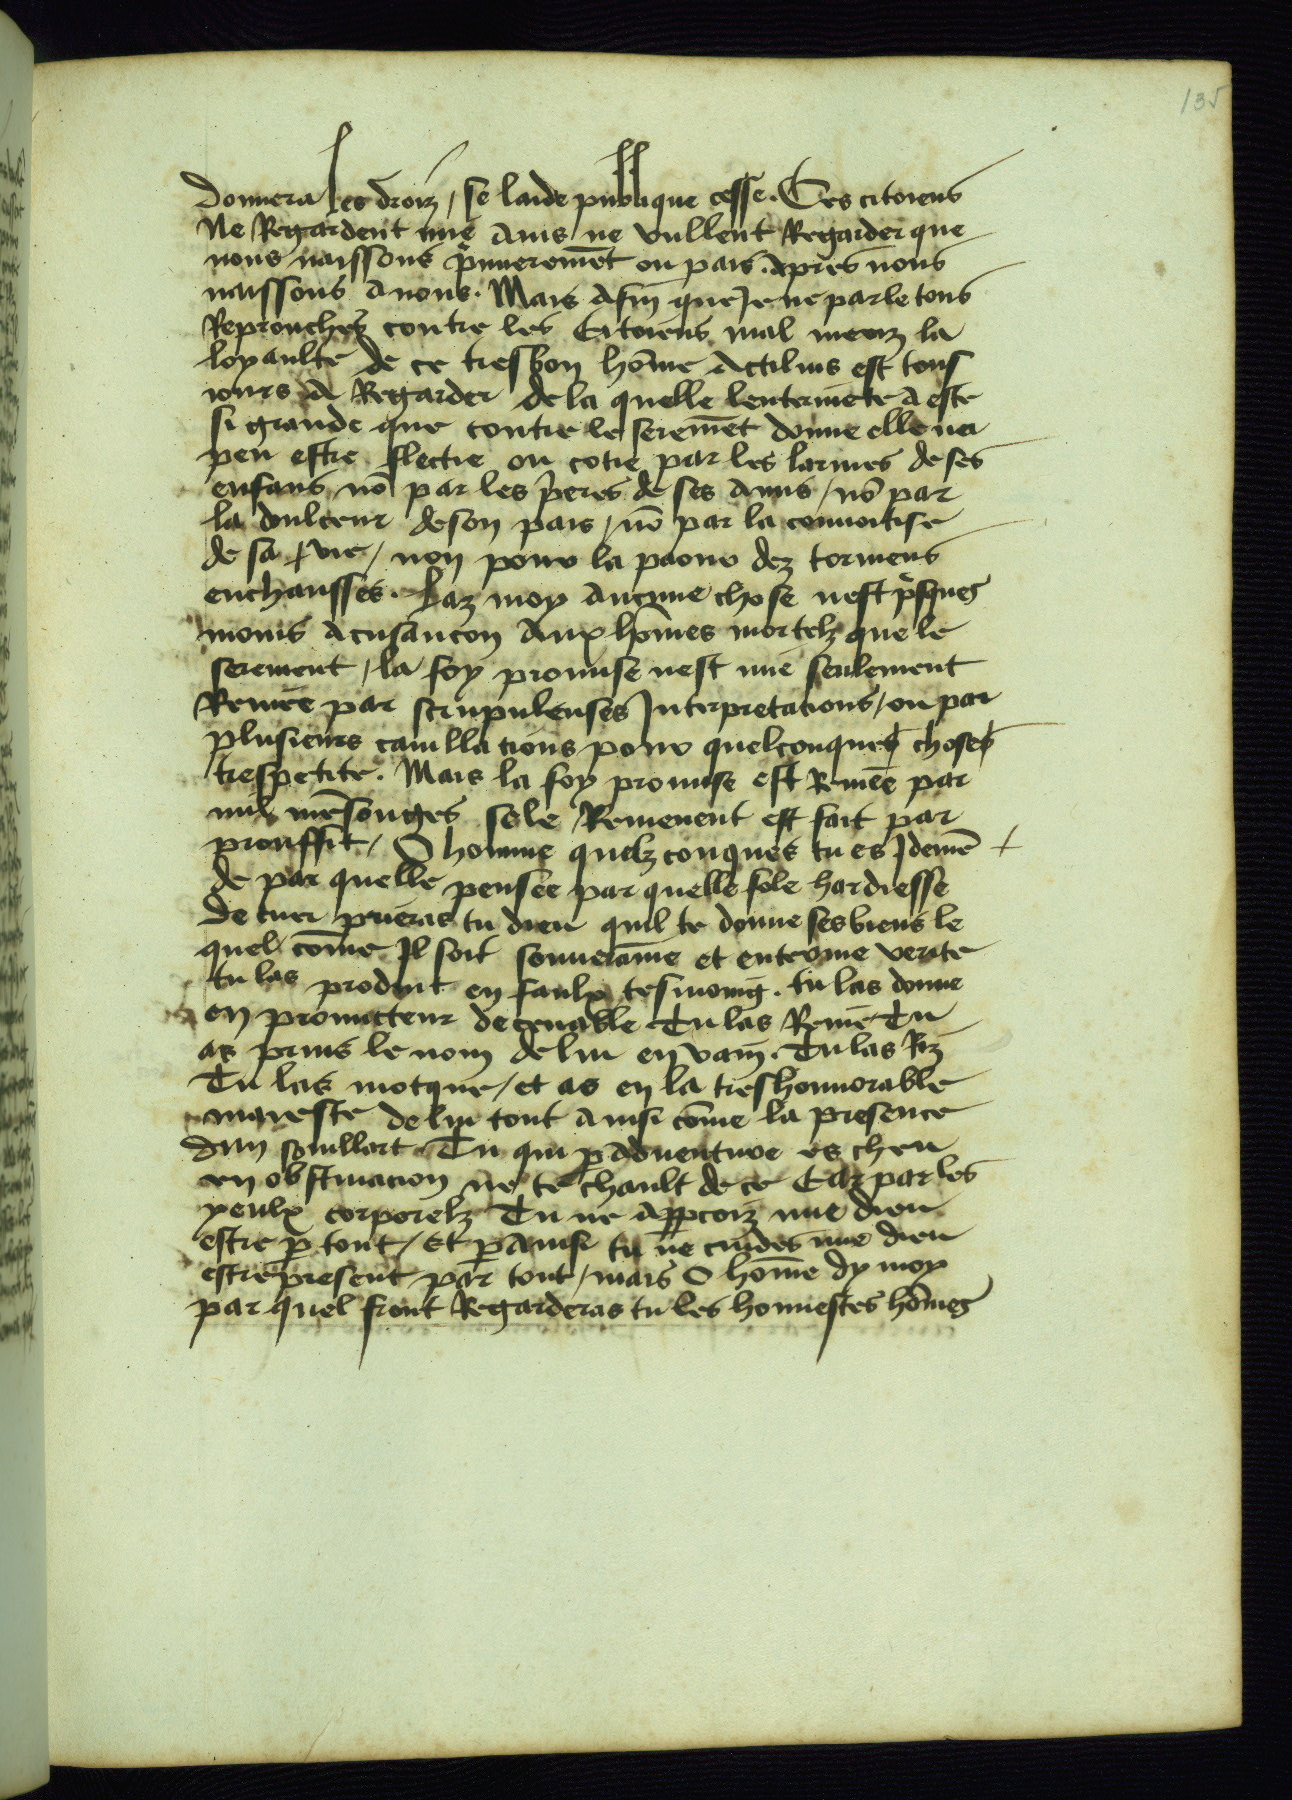 135
donnera les droiz / se laide publique cesse. Ces citoiens
Ne Regardent mie Ains ne vullent Regarder que
nous naissons p̃merement ou pais. apres nous
naissons a nous. Mais afin que Je ne parle tous
Reprouchez contre les Citoiens mal meurz la
loyaulte de ce tresbon hõme Actilius est tous
iours a Regarder de la quelle lenterinete a este
si grande que contre le seremẽt donne elle na
peu estre flectie ou cõtie par les larmes de ses
enfans nõ par les p̃eres de ses amis / nõ par
la doulceur de son pais / nõ par la conuoitise
de sa vie / non pour la paour dez tormens
enchausses. Laz moy aucune chose nest p̃sques
moins acusancon aux hõmes mortelz que le
serement / la foy promise nest mie seulement
Remee par scrupuleuses Interpretacions / ou par
plusieurs cauillations pour quelconques choses
trespetite. Mais la foy promise est Remee par
mil mẽsonges se le Remenent est fait par
prouffit / O homme quelz conques tu es Jdemẽ
de par quelle pensee par quelle fole hardiesse
de cuer prieras tu dieu quil te donne ses biens le
quel cõme Jl soit souueraine et enterine verite
tu las produit en faulx tesmoing. tu las donne
en prometteur deceuable Tu las Remẽ Tu
as prins le nom de lui en vain. Tu las Riz
Tu las mocque / et as en la treshonnorable
maieste de lui tout ainsi cõme la presence
dun souillart. Tu qui p aduenture es cheu
en obstinacion ne te chault de ce Car par les
yeulx corporelz Tu ne appcoiz mie dieu
estre p tout / Et p ainsi tu ne cuides mie dieu
estre present par tout / mais O hõme dy moy
par quel front Regarderas tu les honnestes hõmes